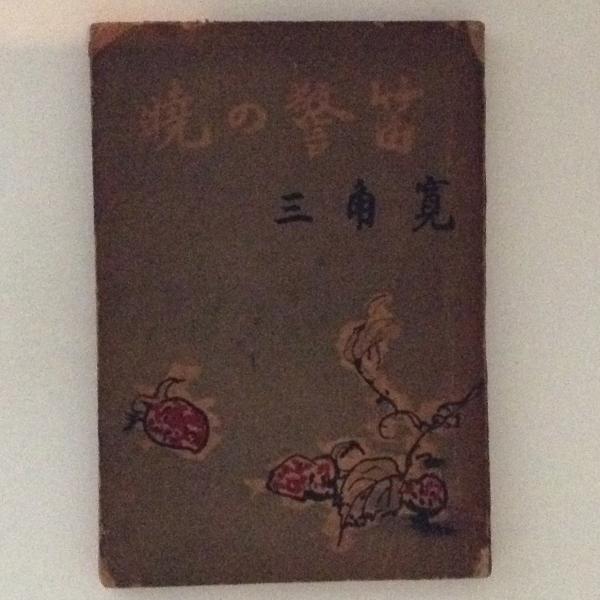 暁の警笛
三角寛